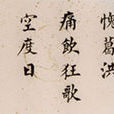 愧葛洪
痛飲狂歌
空度日